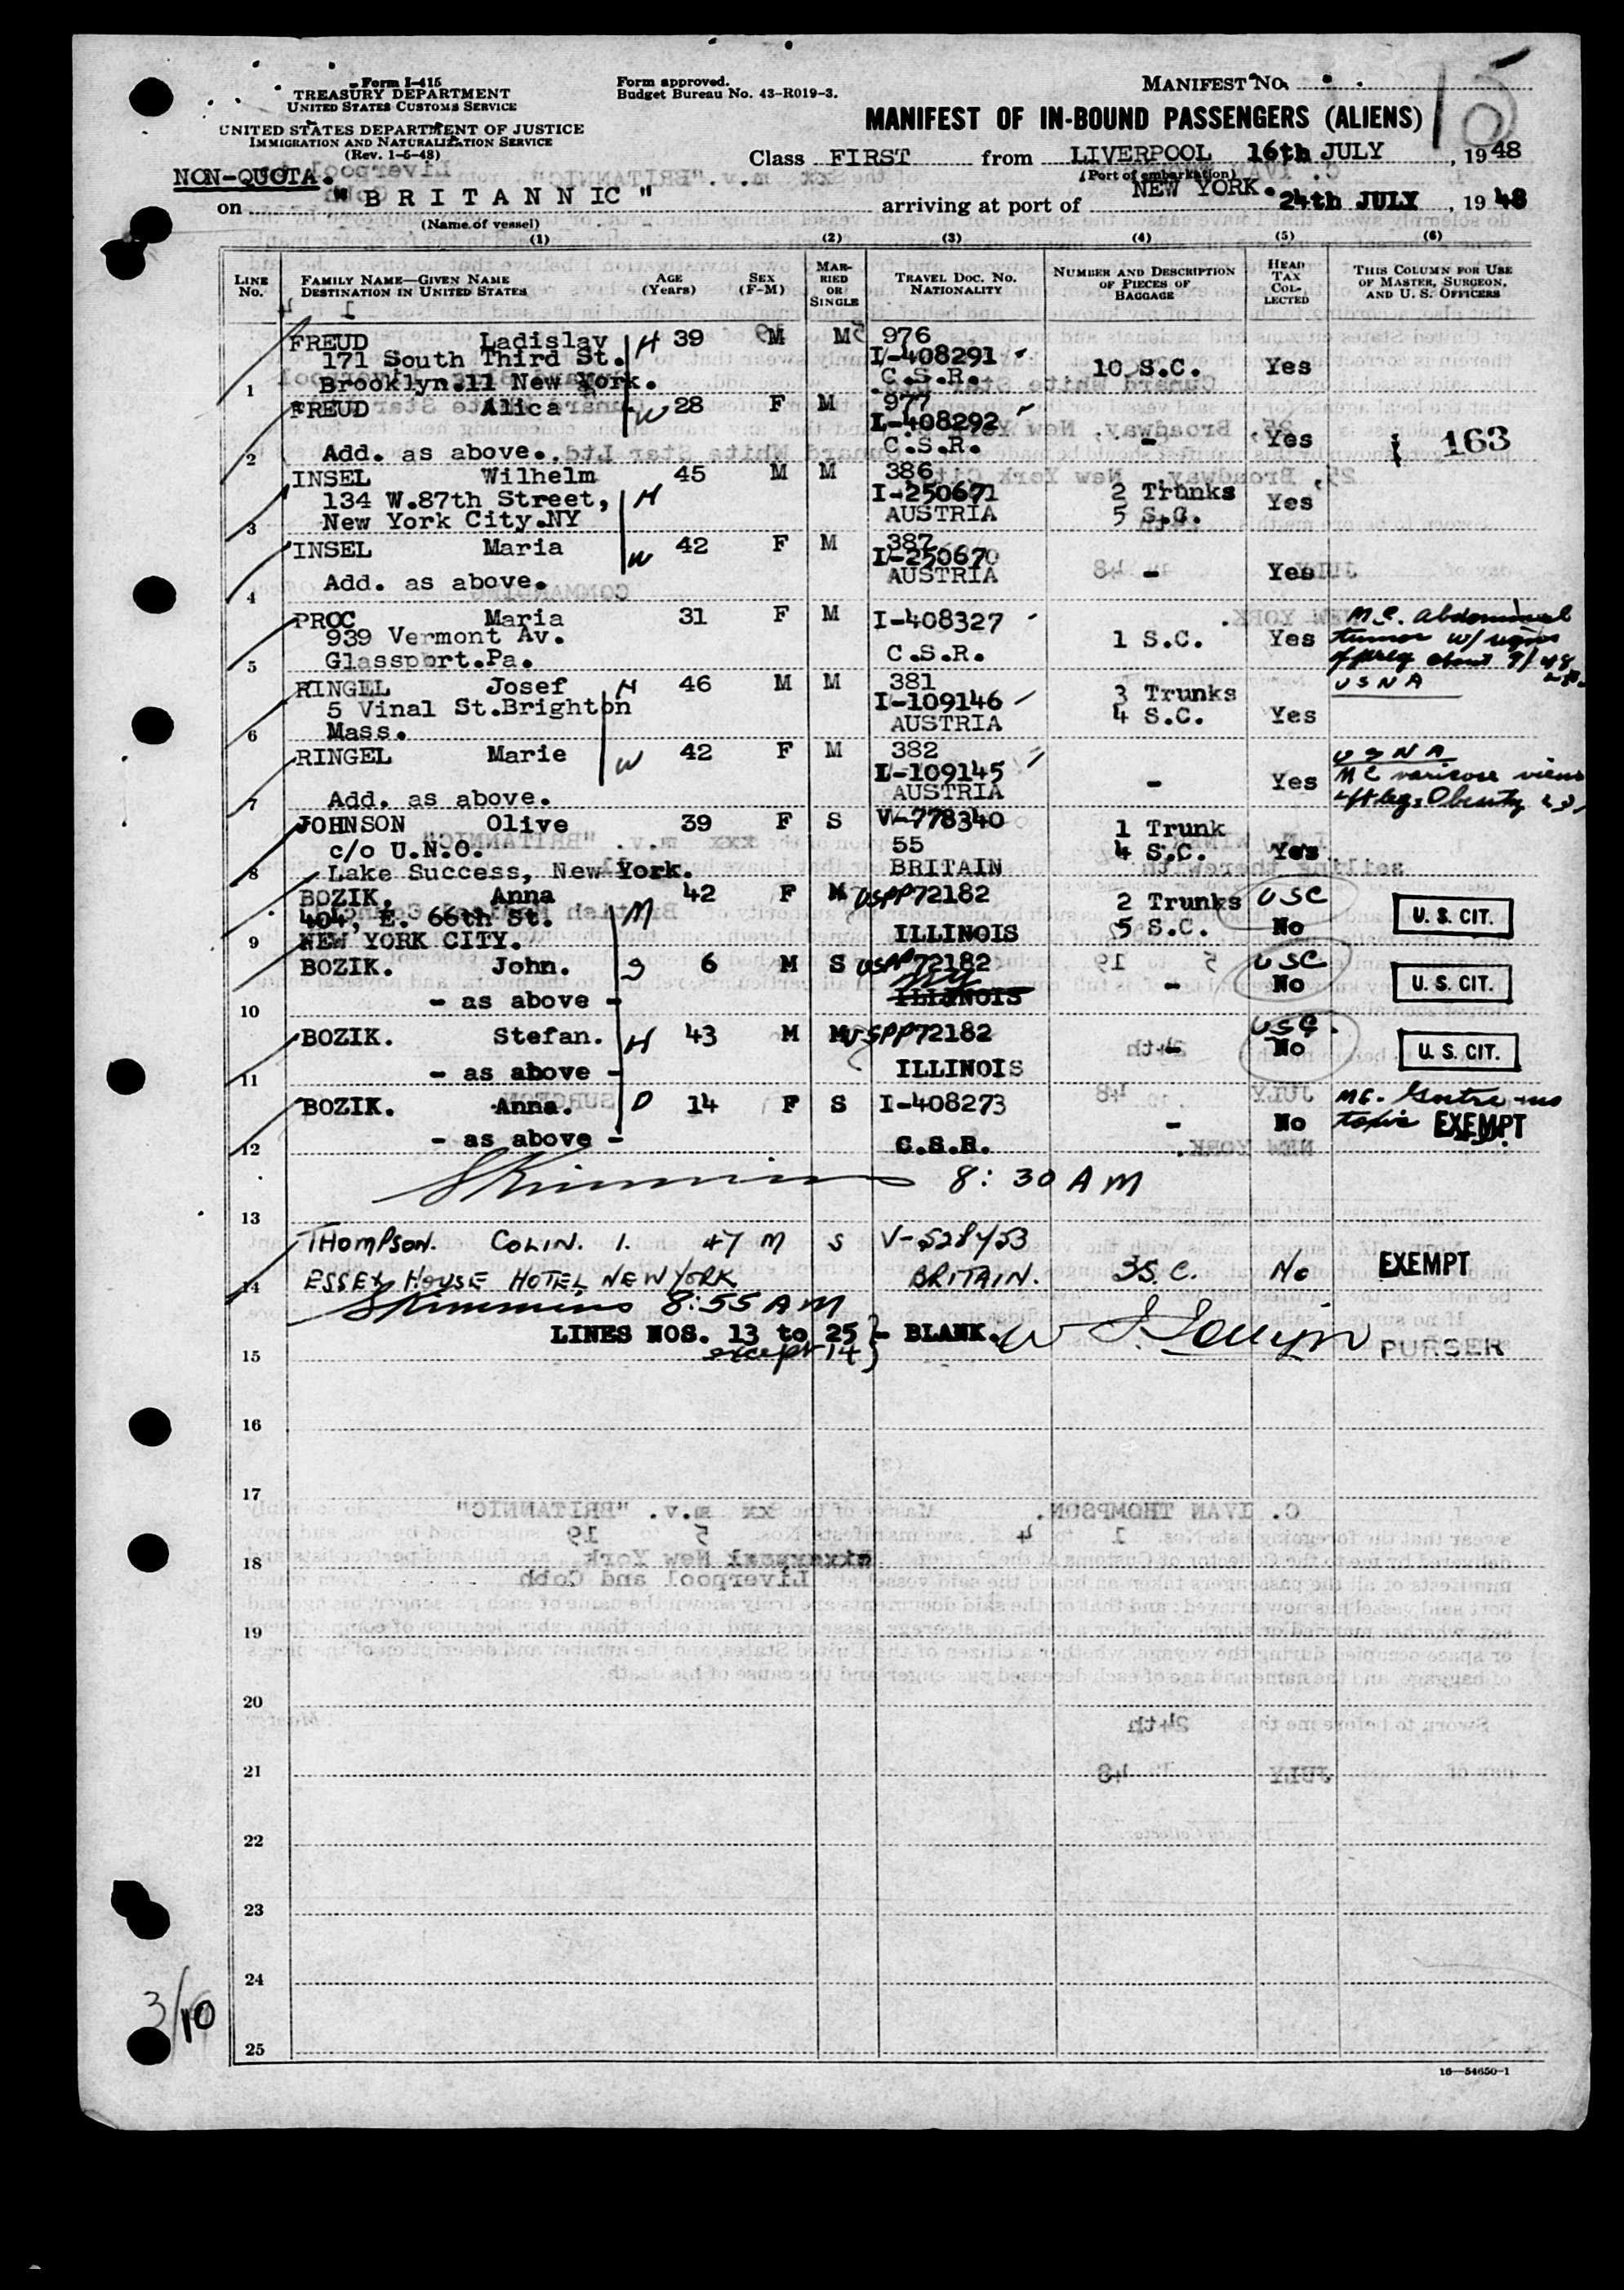 Form I-415
TREASURY DEPARTMENT
UNITED STATES CUSTOMS SERVICE
UNITED STATES DEPARTMENT OF JUSTICE
IMMIGRATION AND NATURALIZATION SERVICE
(Rev. 1-5-48)
Form approved.
Budget Bureau No. 43-R019-3.
MANIFEST NO. 15
MANIFEST OF IN-BOUND PASSENGERS (ALIENS)
Class FIRST from LIVERPOOL 16th JULY, 1948
(Port of embarkation)
NON-QUOTA.
on "BRITANNIC" arriving at port of NEW YORK. 24th JULY, 1948
(Name of vessel)
(1) (2) (3) (4) (5) (6)
LINE No. FAMILY NAME—GIVEN NAME DESTINATION IN UNITED STATES AGE (Years) SEX (F-M) MARRIED OR SINGLE TRAVEL DOC. NO. NATIONALITY NUMBER AND DESCRIPTION OF PIECES OF BAGGAGE HEAD TAX COLLECTED THIS COLUMN FOR USE OF MASTER, SURGEON, AND U. S. OFFICERS
FREUD Ladislav H 39 M M 976
171 South Third St. I-408291
1 Brooklyn.11 New York. C.S.R. 10 S.C. Yes
FREUD Alica W 28 F M 977
I-408292
2 Add. as above. C.S.R. - Yes 163
INSEL Wilhelm 45 M M 386
134 W.87th Street, H I-250671 2 Trunks Yes
3 New York City.NY AUSTRIA 5 S.C.
INSEL Maria W 42 F M 387
I-250670
4 Add. as above. AUSTRIA - Yes
PROC Maria 31 F M I-408327 M.C. Abdominal
939 Vermont Av. 1 S.C. Yes tumor w/ signs
5 Glassport.Pa. C.S.R. of preg about 9/48
RINGEL Josef H 46 M M 381 3 Trunks USNA
5 Vinal St.Brighton I-109146 4 S.C. Yes
6 Mass. AUSTRIA
RINGEL Marie W 42 F M 382 USNA
I-109145 - Yes MC varicose viens
7 Add. as above. AUSTRIA left leg. Obesity
JOHNSON Olive 39 F S V-778340 1 Trunk
c/o U.N.O. 55 4 S.C. Yes
8 Lake Success, New York. BRITAIN
BOZIK, Anna 42 F M USPP72182 2 Trunks USC
404, E. 66th St. M 5 S.C. No U. S. CIT.
9 NEW YORK CITY. ILLINOIS
BOZIK. John. S 6 M S USPP72182 USC
NY - No U. S. CIT.
10 - as above - ILLINOIS
BOZIK. Stefan. H 43 M M USPP72182 USC.
- No U. S. CIT.
11 - as above - ILLINOIS
BOZIK. Anna. D 14 F S I-408273 MC. Goitre -no
- No toxic EXEMPT
12 - as above - C.S.R.
8:30 AM
13
THOMPSON. COLIN. I. 47 M S V-528453
14 ESSEX HOUSE HOTEL, NEW YORK BRITAIN. 3 S.C. No EXEMPT
8:55 AM
LINES NOS. 13 to 25 - BLANK.
15 except 14 PURSER
16
17
C. IVAN THOMPSON. m.v. "BRITANNIC"
18
Liverpool and Cobh
19
20
24th
21
JULY 48
22
23
24
3/10
25
16—54650-1